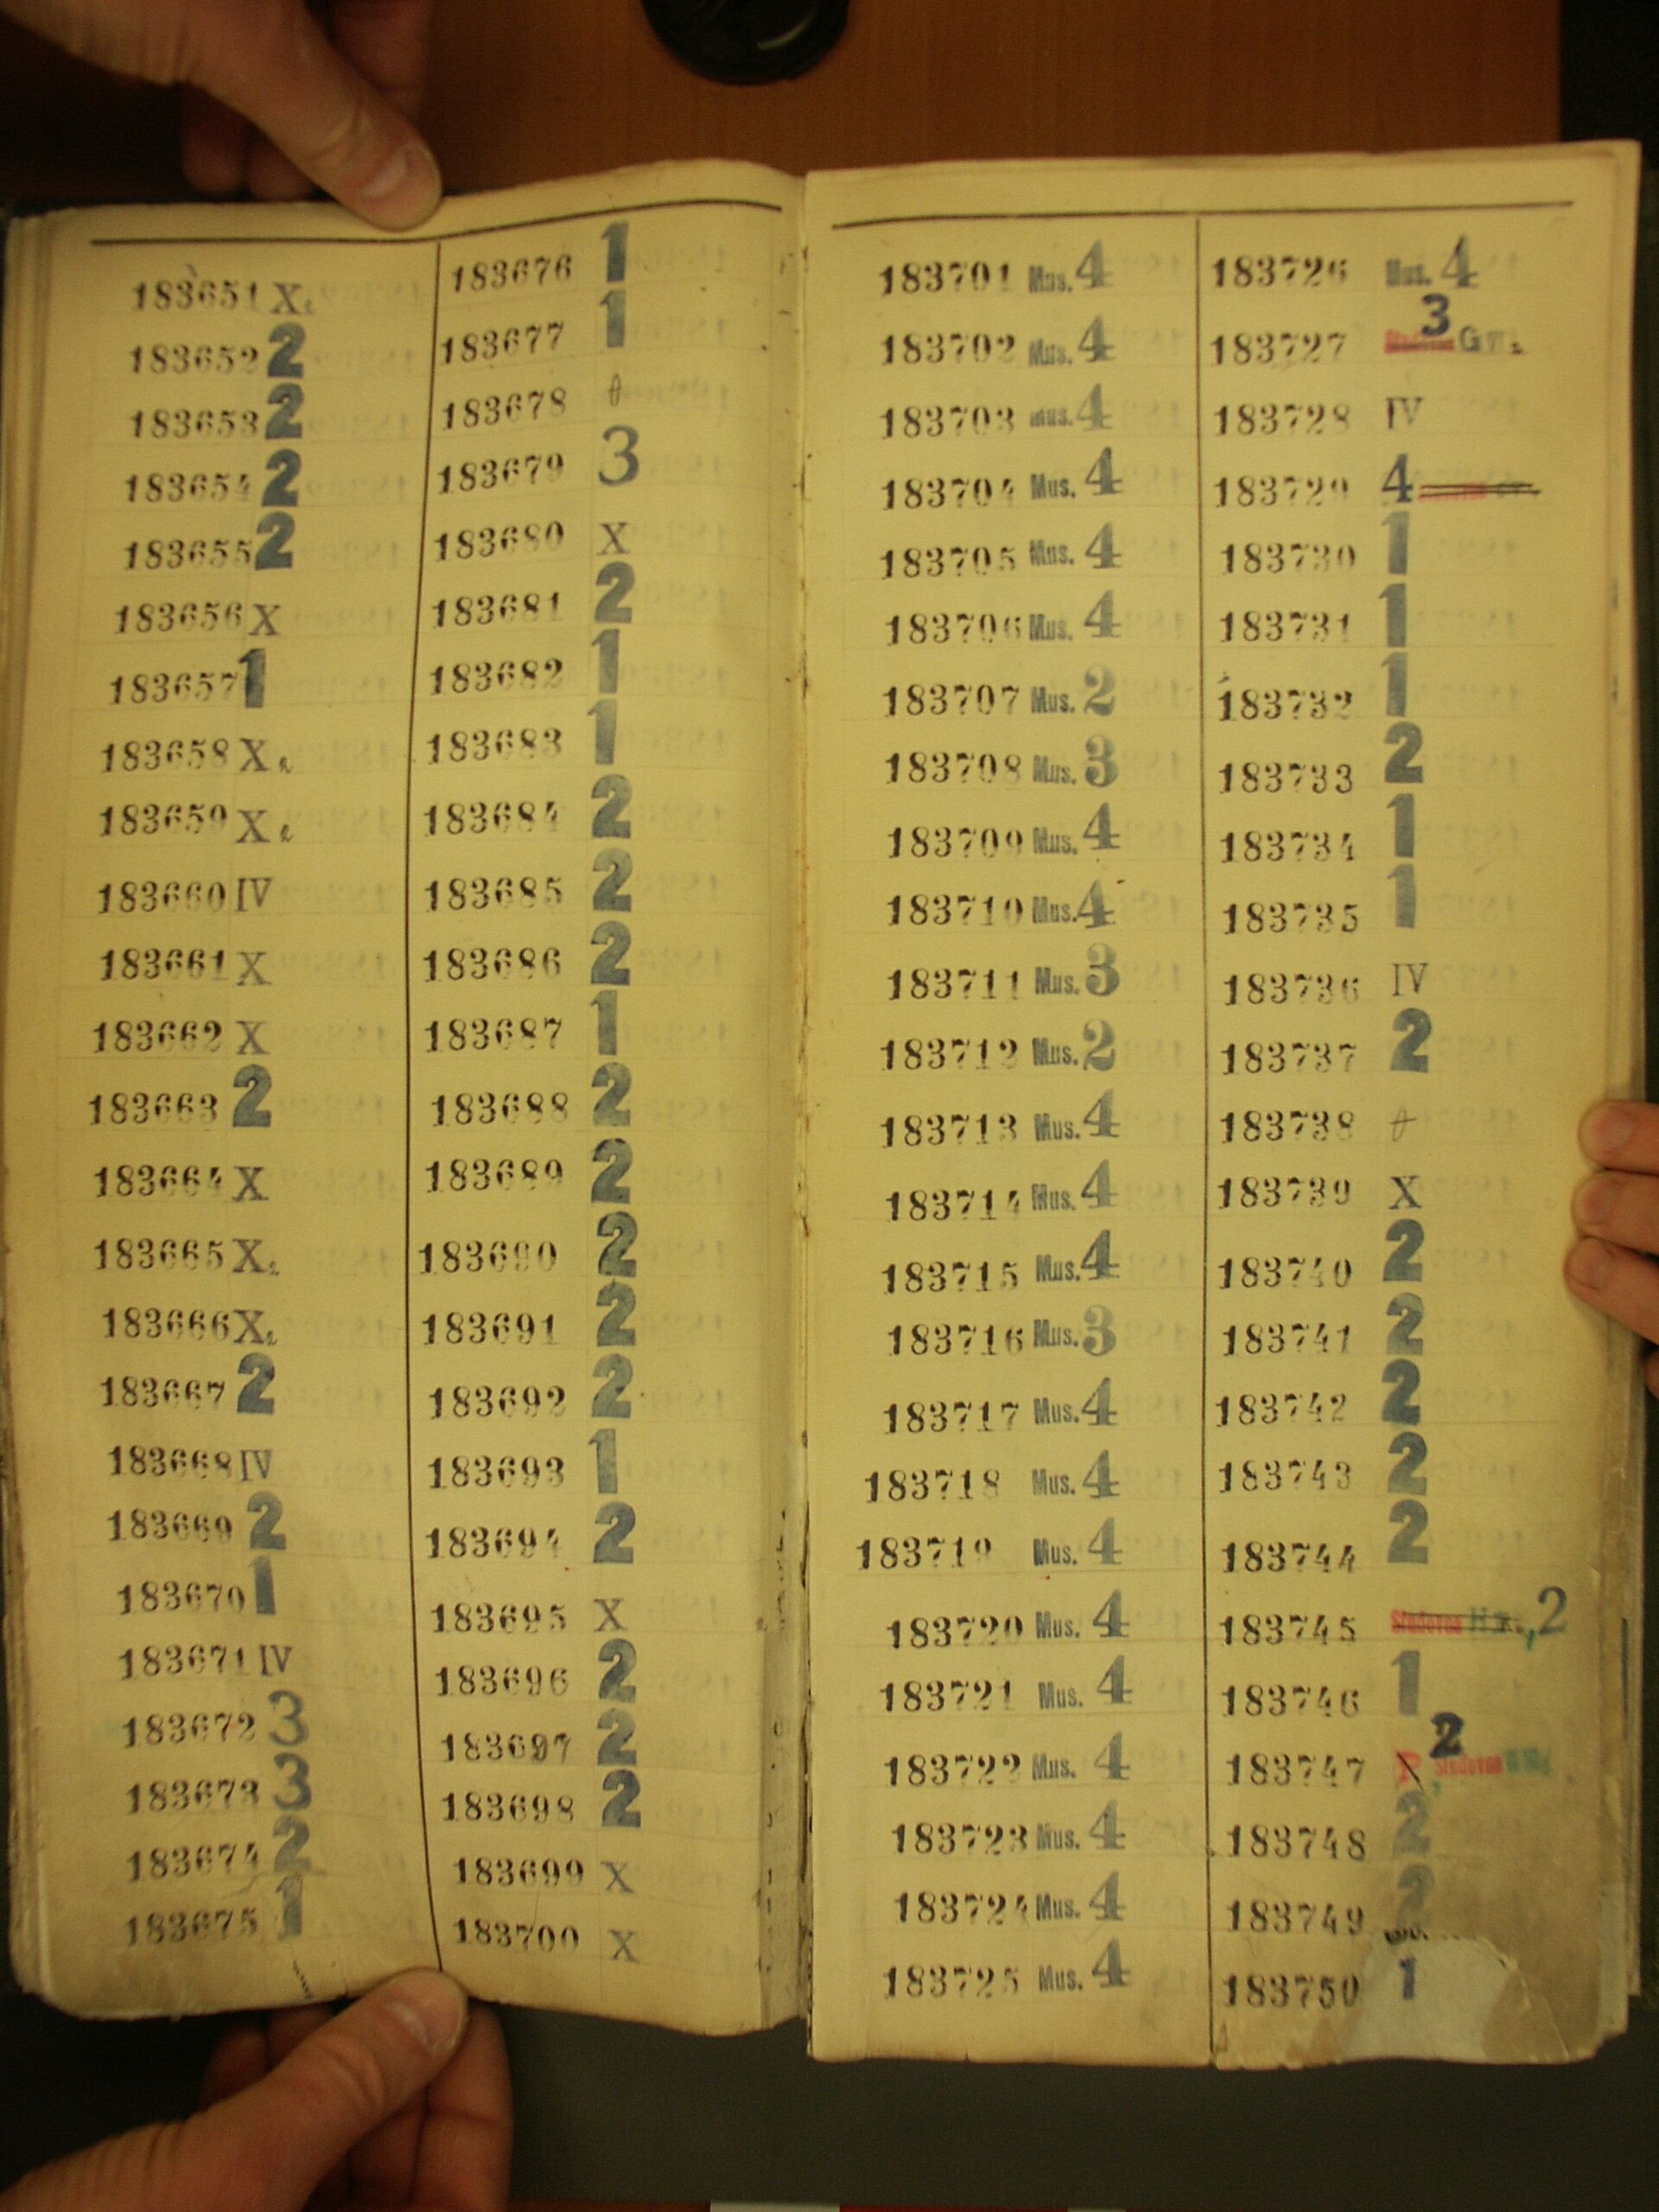 183651 X.
183652 2
183653 2
183654 2
183655 2
183656 X
183657 1
183658 X
183659 X
183660 IV
183661 X
183662 X
183663 2
183664 X
183665 X.
183666 X.
183667 2
183668 IV
183669 2
183670 1
183671 IV
183672 3
183673 3
183674 2
183675 1
183676 1
183677 1
183678
183679 3
183680 X
183681 2
183682 1
183683 1
183684 2
183685 2
183686 2
183687 1
183688 2
183689 2
183690 2
183691 2
183692 2
183693 1
183694 2
183695 X
183696 2
183697 2
183698 2
183699 X
183700 X
183701 Mus. 4
183702 Mus. 4
183703 Mus. 4
183704 Mus. 4
183705 Mus. 4
183706 Mus. 4
183707 Mus. 2
183708 Mus. 3
183709 Mus. 4
183710 Mus. 4
183711 Mus. 3
183712 Mus. 2
183713 Mus. 4
183714 Mus. 4
183715 Mus. 4
183716 Mus. 3
183717 Mus. 4
183718 Mus. 4
183719 Mus. 4
183720 Mus. 4
183721 Mus. 4
183722 Mus. 4
183723 Mus. 4
183724 Mus. 4
183725 Mus. 4
183726 Mus. 4
183727 3
183728 IV
183729 4
183730 1
183731 1
183732 1
183733 2
183734 1
183735 1
183736 IV
183737 2
183738
183739 X
183740 2
183741 2
183742 2
183743 2
183744 2
183745 2
183746 1
183747 2
183748 2
183749 2
183750 1